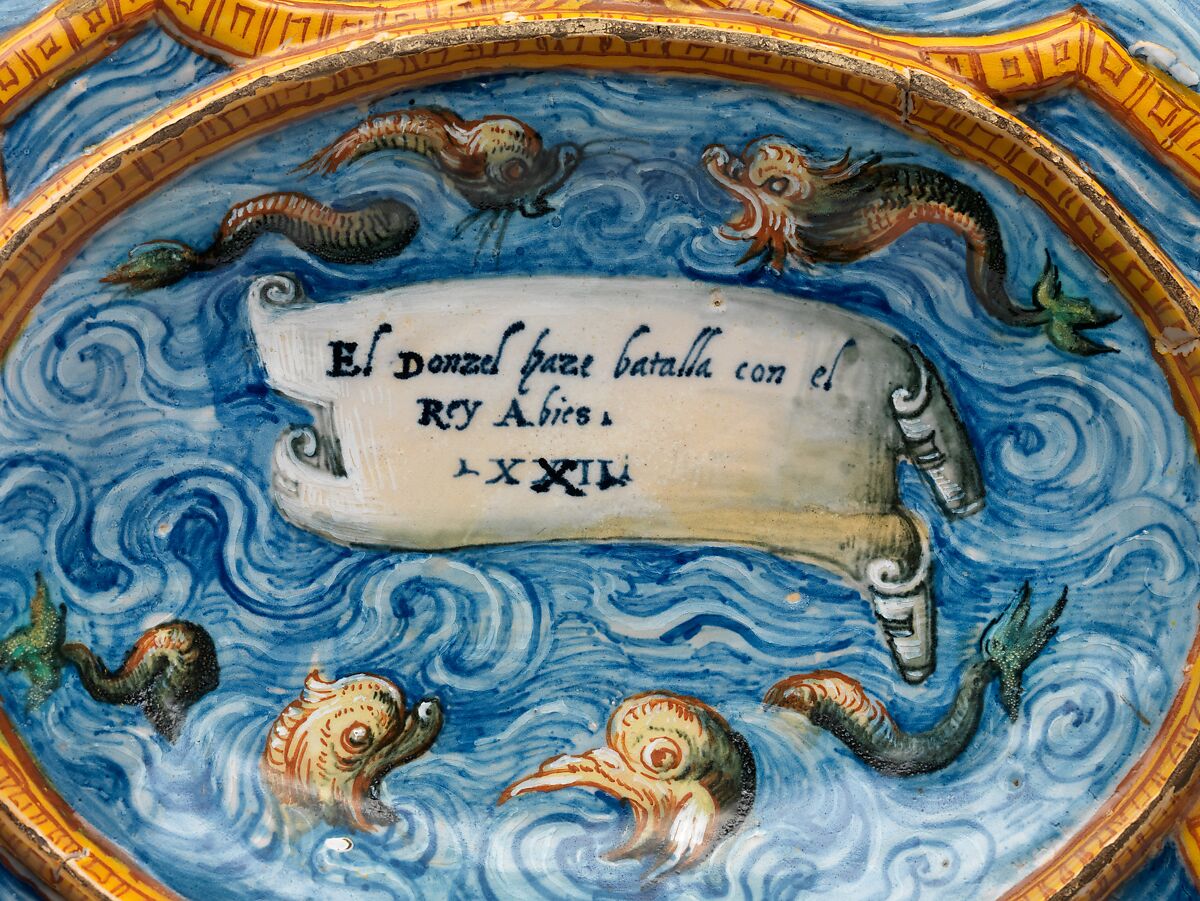 El Donzel haze batalla con el
Rey Abies.